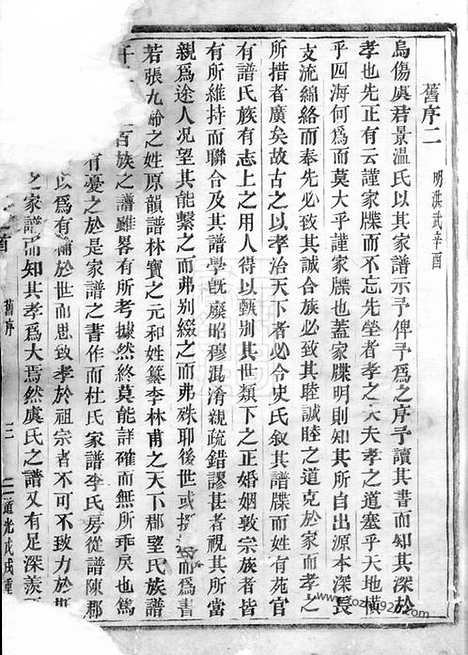 舊序二 明洪武辛酉
烏傷虞君景溫氏以其家譜示予俾予爲之序予讀其書而知其深於
孝也先正有云謹家牒而不忘先塋者孝之大夫孝之道塞乎天地橫
乎四海何爲而莫大乎謹家牒也蓋家牒明則知其所自出源本深長
支流綿絡而奉先必致其誠合族必致其睦誠睦之道克於家而孝之
所措者廣矣故古之以孝治天下者必合史氏叙其譜牒而姓有苑官
有譜氏族有志上之用人得以甄別其世類下之正婚姻敦宗族者皆
有所維持而聯合及其譜學旣廢昭穆混淆親疏錯謬甚者視其所當
親爲途人况望其能繫之而弗别綴之而弗殊耶後世或 而爲書
若張九齡之姓原韻譜林寶之元和姓纂李林甫之天下郡望氏族譜
千 百族之譜雖畧有所考據然終莫能詳確而無所乖戾也篤
有憂之於是家譜之書作而杜氏家譜李氏房從譜陳郡
以爲有補於世而思致孝於祖宗者不可不致力於斯
之家譜而知其孝爲大焉然虞氏之譜又有足深羨
首 舊序 三 道光戊戌重
www.fozu1920.com